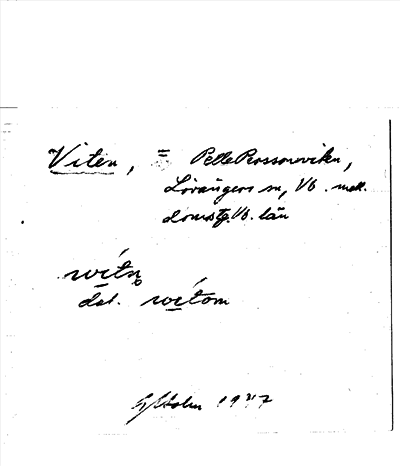 Viten, = Pelle Perssonviken,
Lövångers sn, Vb. mell.
domstg. Vb. län
witn̥
dat. witom
GHolm 1947